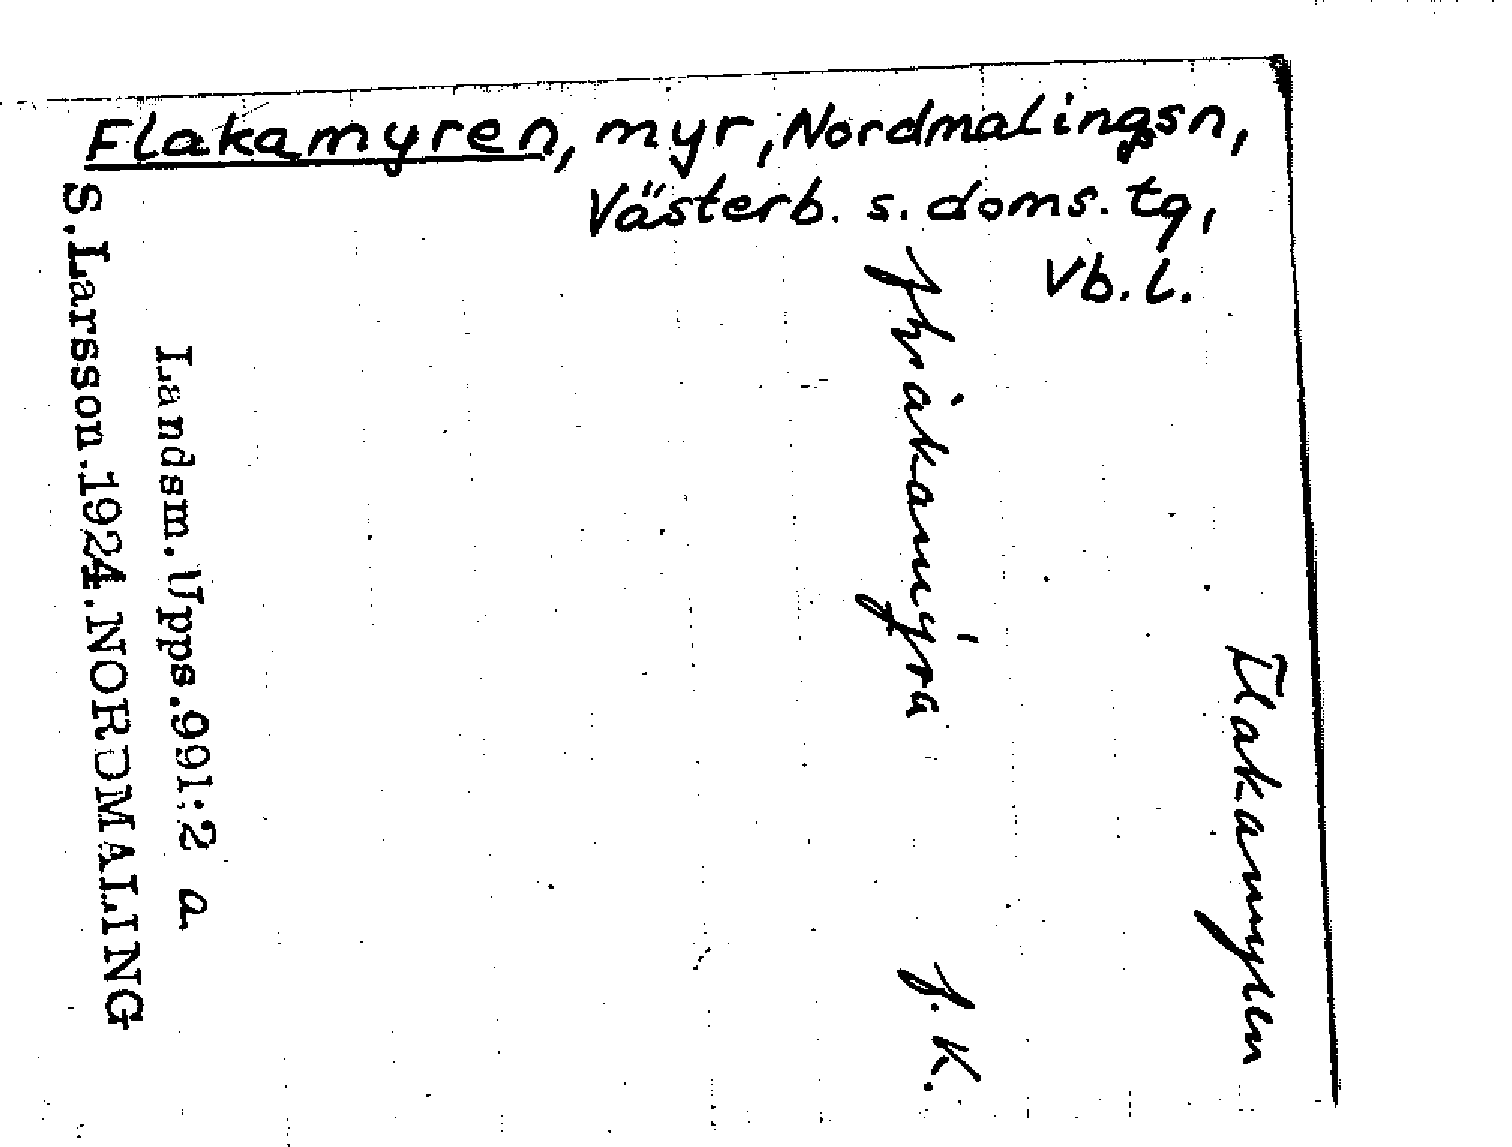 Flakamyren, myr, Nordmalingsn,
Västerb. s. doms. tg,
Vb. l.
Flakamyren
J. K.
Landsm. Upps. 991:2 a
S. Larsson. 1924. NORDMALING